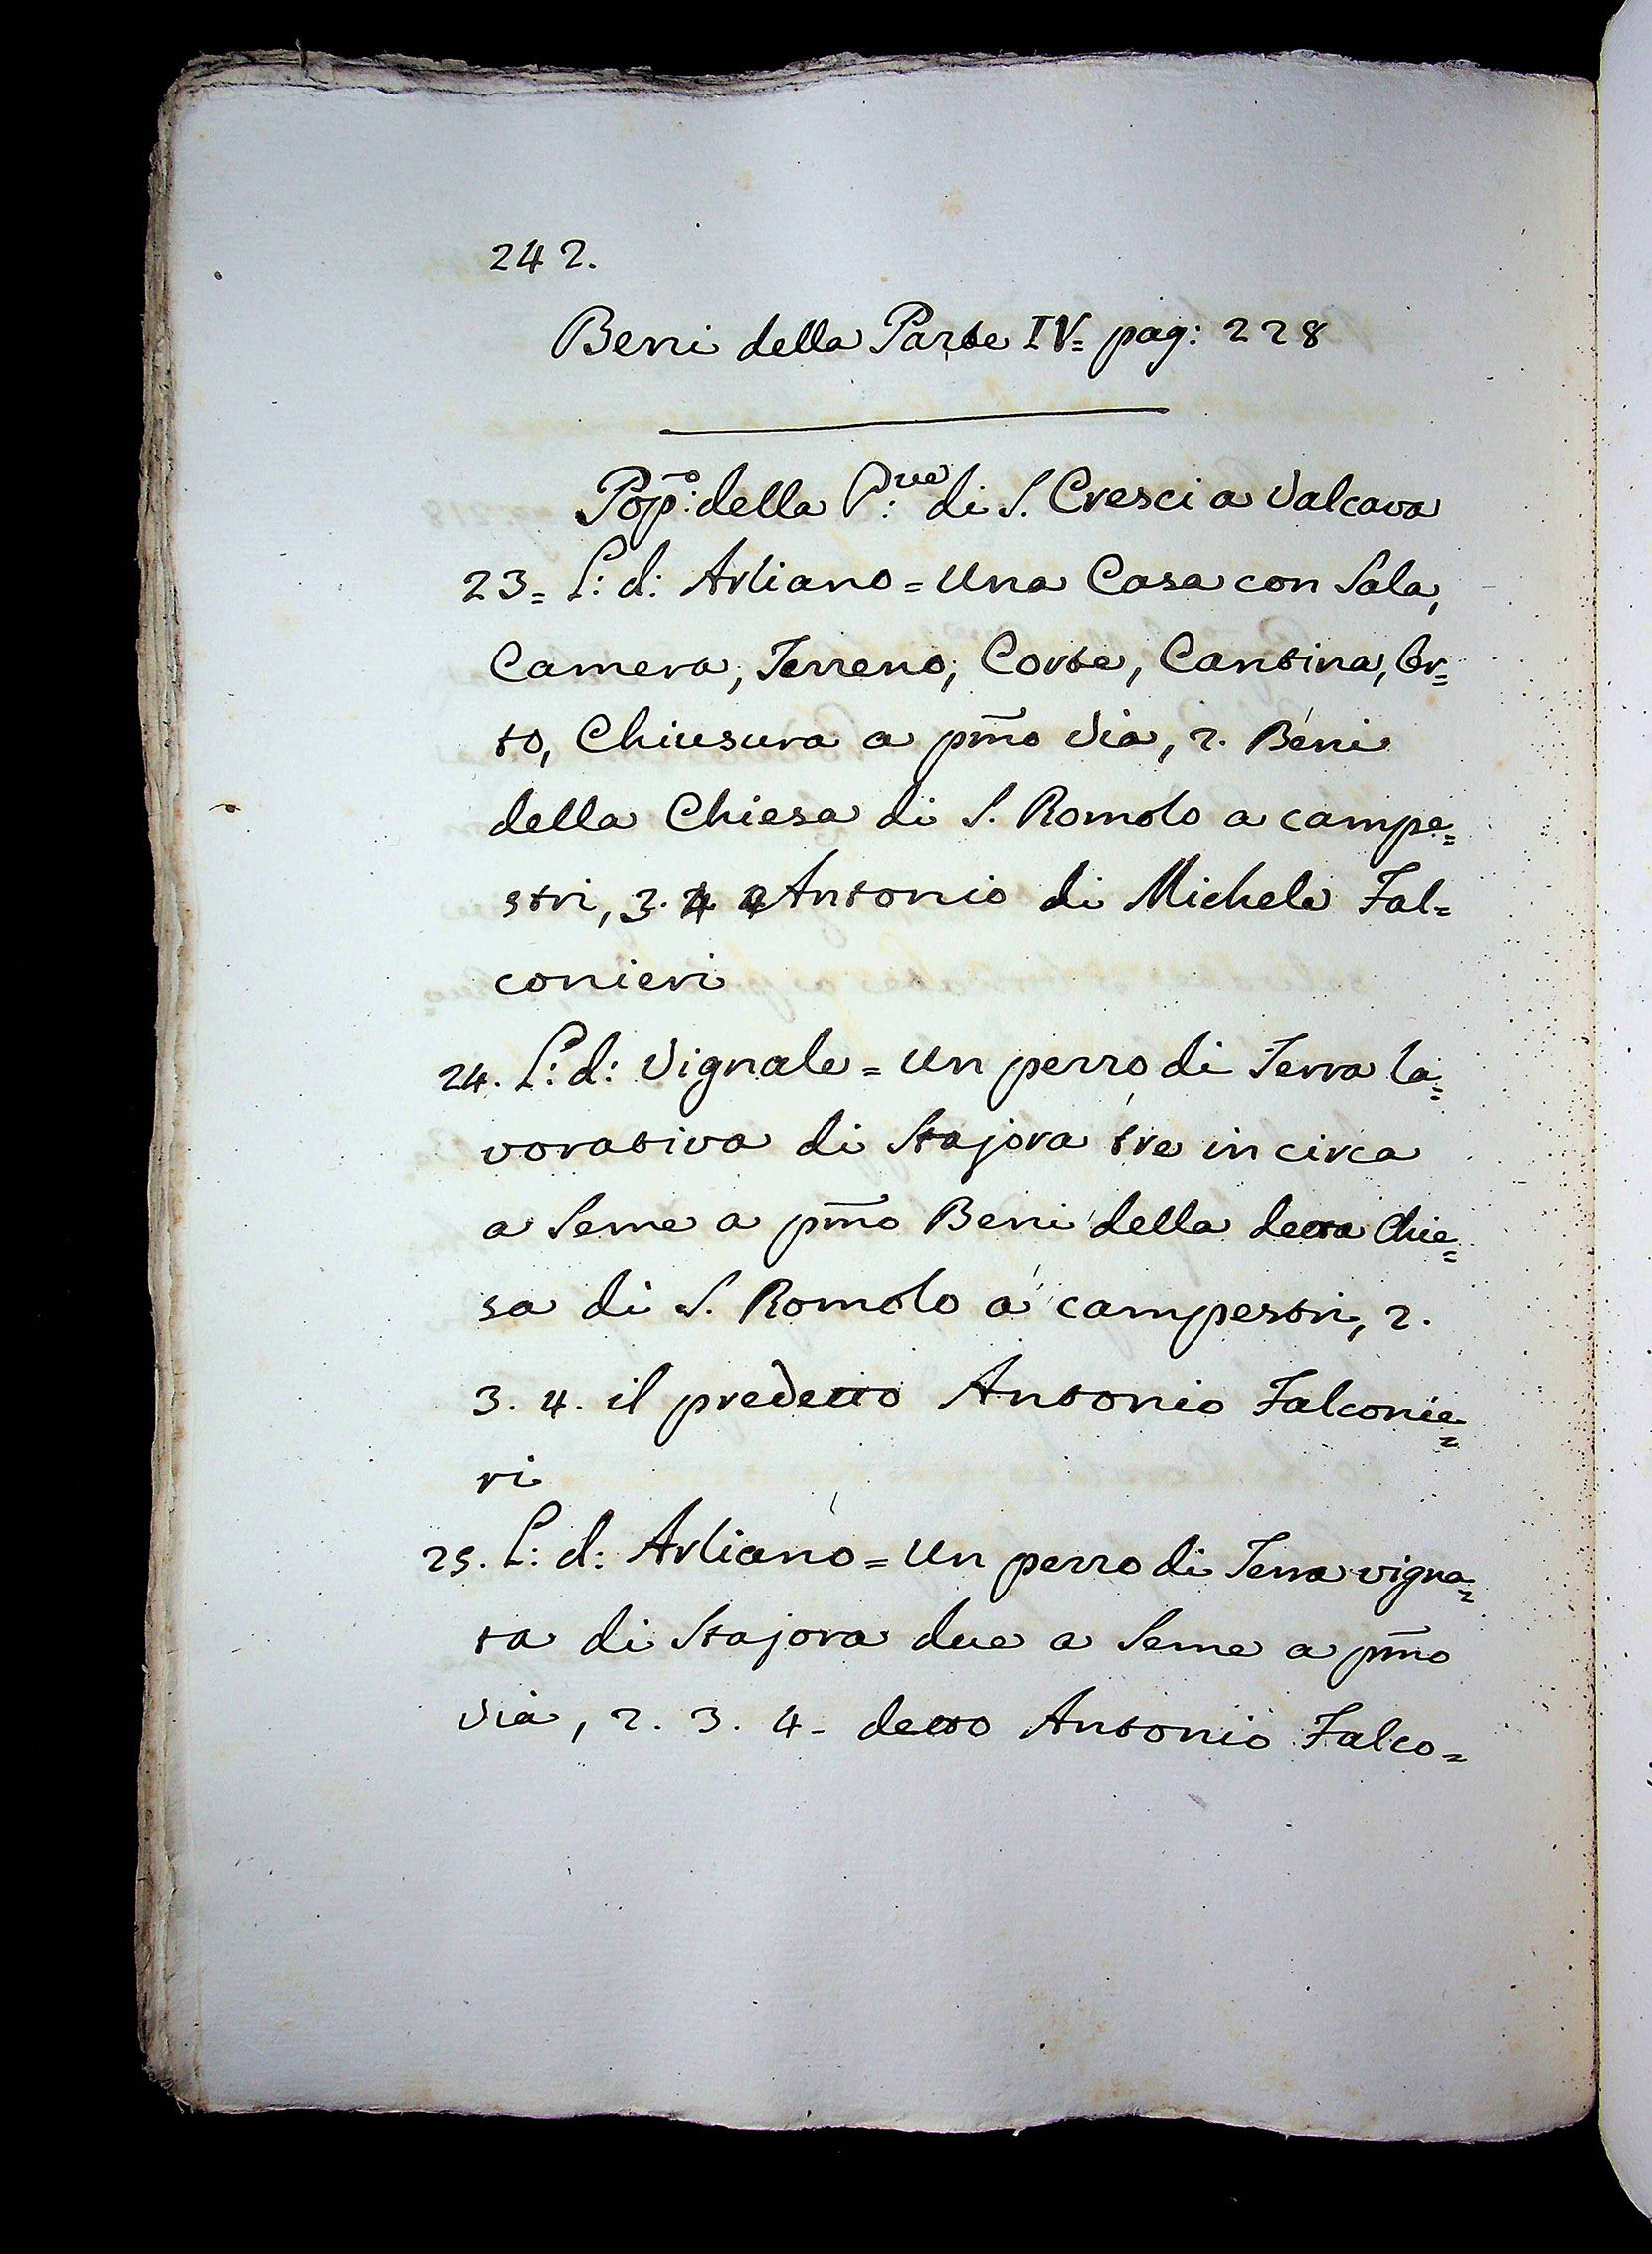 242.
Beni della Parte IV= pag: 228
Pop:º della P:ve di S. Cresci a Valcava
23= L: d: Arliano = Una Casa con Sala,
Camera, Terreno, Corte, Cantina, Or=
to, Chiusura a pm̃o Via, 2. Beni
della Chiesa di S. Romolo a campe=
stri, 3. 4 Antonio di Michele Fal=
conieri
24. L: d: Vignale = Un pezzo di Terra la=
vorativa di Stajora tre in circa
a Seme a pm̃o Beni della detta Chie=
sa di S. Romolo a campestri, 2.
3. 4. il predetto Antonio Falconie=
ri
25. L: d: Arliano = Un pezzo di Terra vigna=
ta di Stajora due a Seme a pm̃o
Via, 2. 3. 4. detto Antonio Falco=